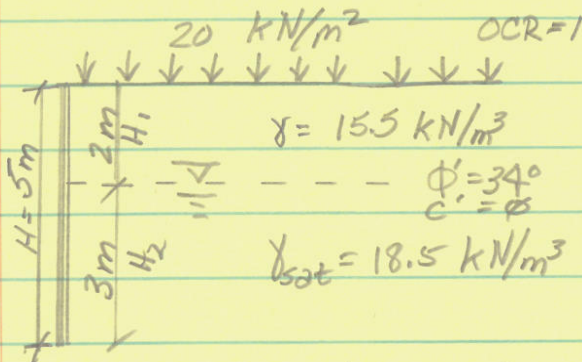 20 kN/m² OCR=1
H=5m
2m H₁
γ= 15.5 kN/m³
ϕ'=34°
c' = ø
3m H₂
γsat = 18.5 kN/m³